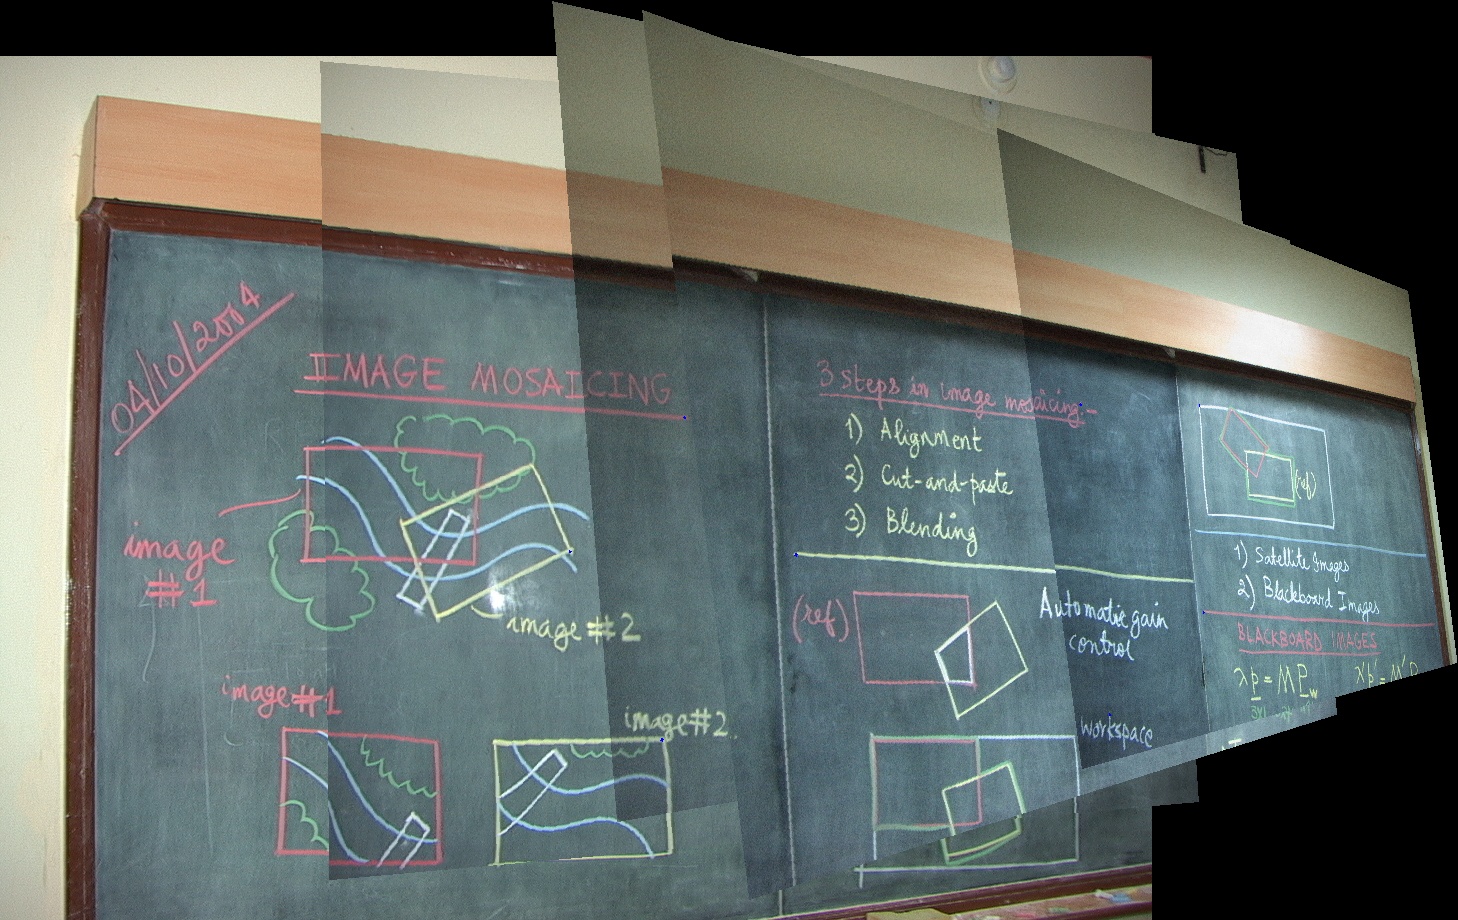 04/10/2004
IMAGE MOSAICING
image
#1
image #2
image #1
image #2
3 steps in image mosaicing:-
1) Alignment
2) Cut-and-paste
3) Blending
(ref)
Automatic gain
control
workspace
(ref)
1) Satellite Images
2) Blackboard Images
BLACKBOARD IMAGES
λp = MP_w λ'p' = M'P